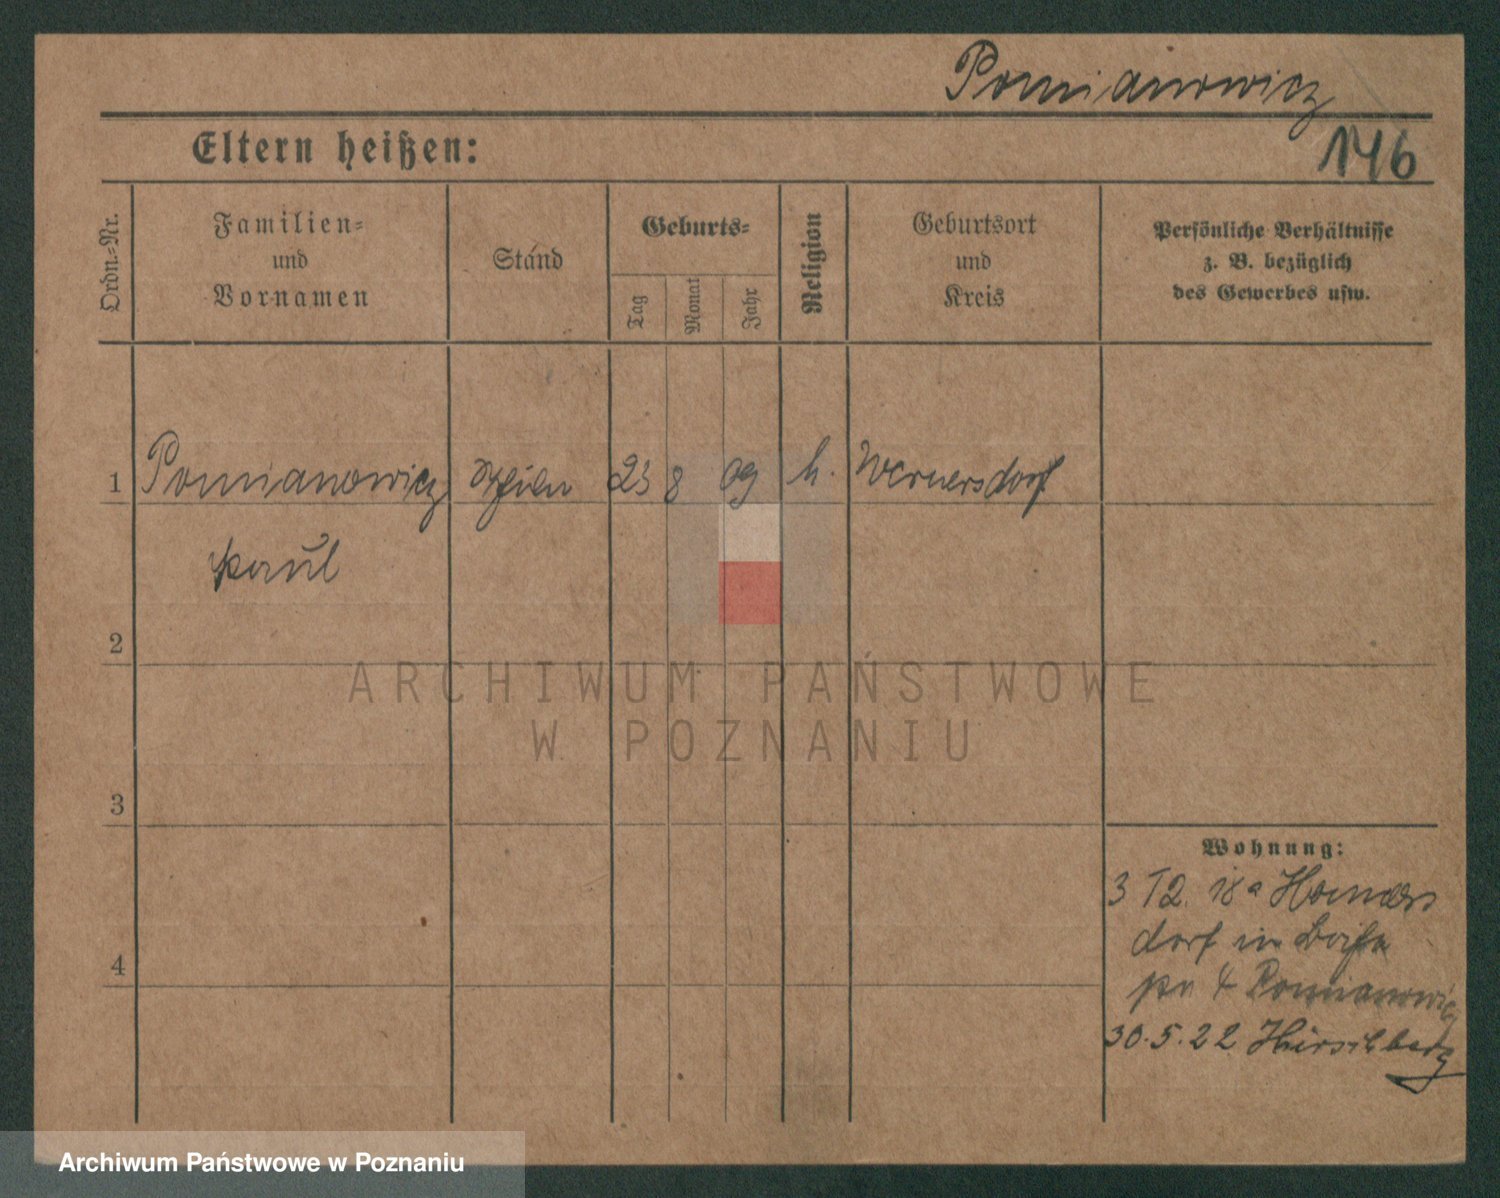 Pomianowicz
146
Eltern heißen:
Ordn.-Nr.
Familien-
und
Vornamen
Stand
Geburts-
Tag
Monat
Jahr
Religion
Geburtsort
und
Kreis
Persönliche Verhältnisse
z. B. bezüglich
des Gewerbes usw.
1 Pomianowicz 23 8 09 k. Wernersdorf
Paul
2
3
4
Wohnung:
3 12. 18a
dorf in
Pomianowicz
30.5.22 Hirschberg
ARCHIWUM PAŃSTWOWE
W POZNANIU
Archiwum Państwowe w Poznaniu